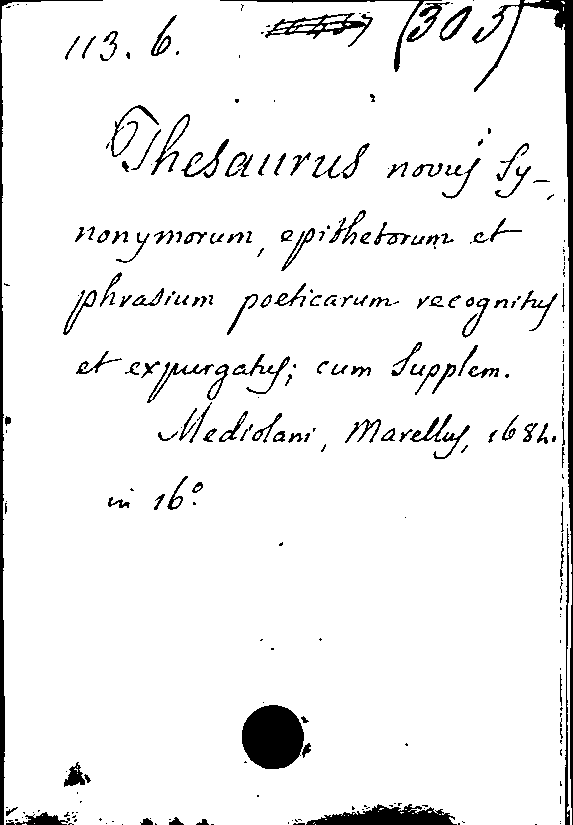 113. 6. (303)
Thesaurus novus Sy-
nonymorum, epithetorum et
phrasium poeticarum recognitus
et expurgatus; cum Supplem.
Mediolani, Marellus, 1684.
in 16º